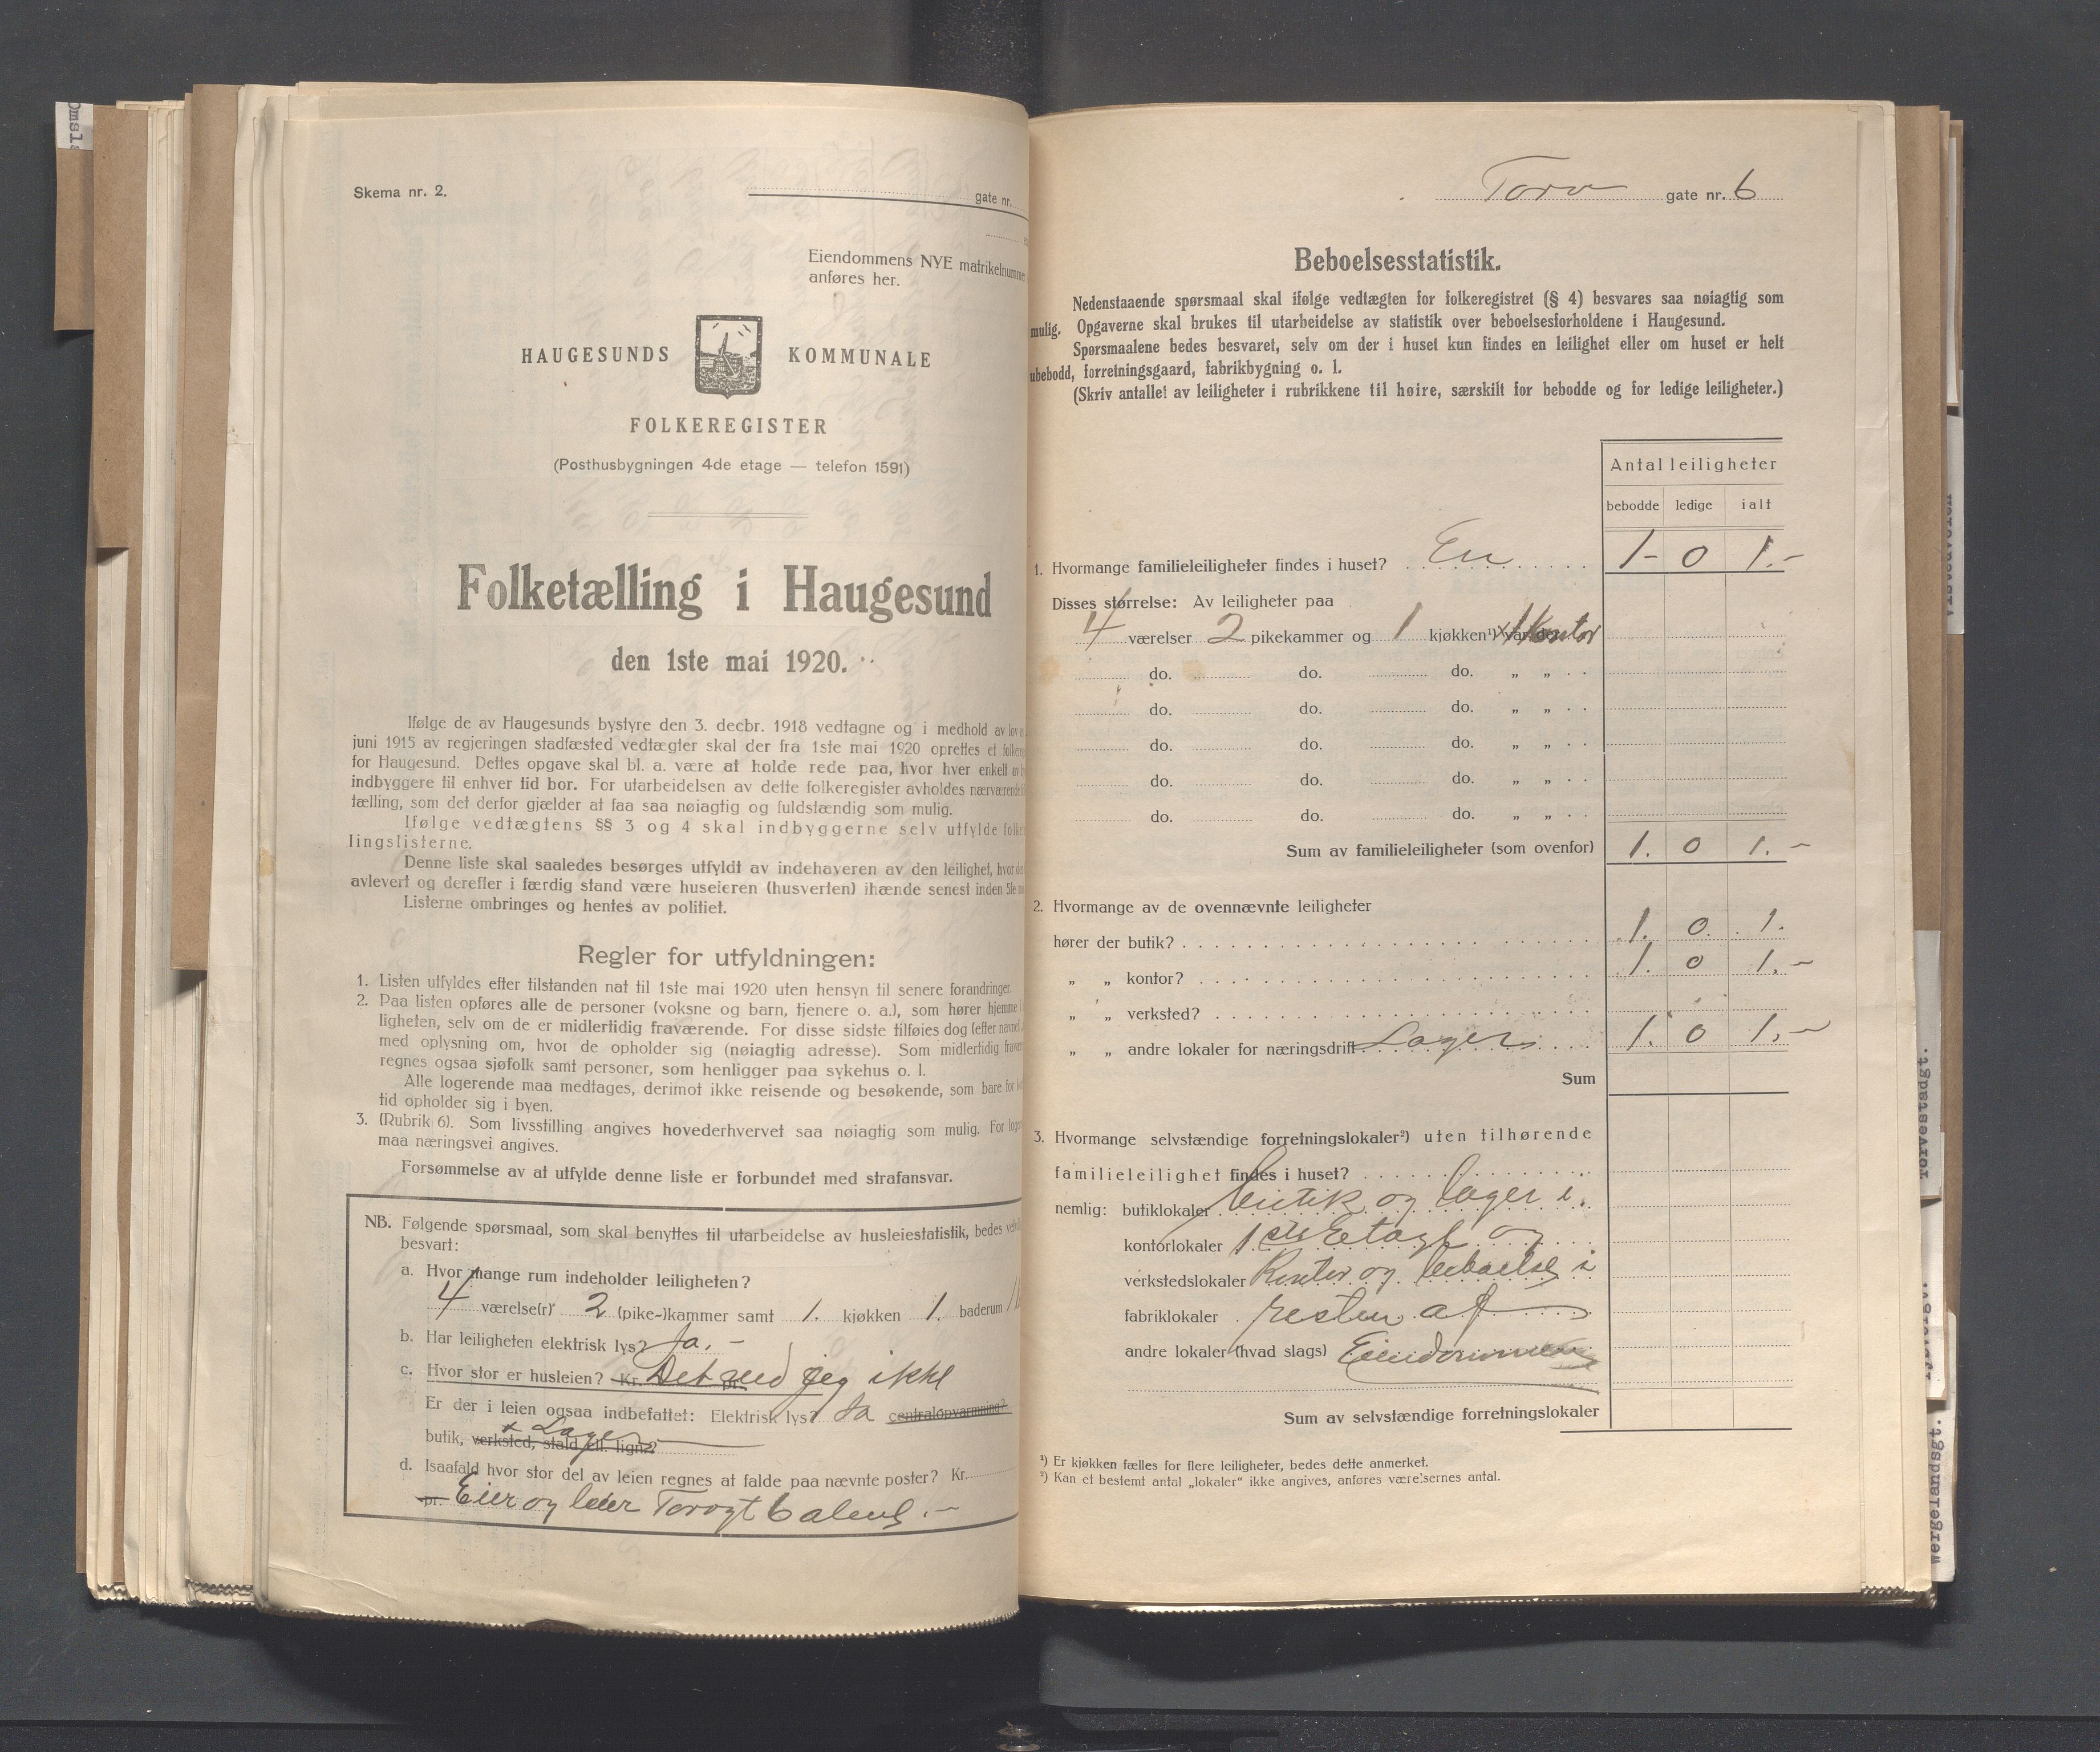 Omsl
Skema nr. 2.
gate nr.
Eiendommens NYE matrikelnummer
anføres her.
HAUGESUNDS KOMMUNALE
FOLKEREGISTER
(Posthusbygningen 4de etage — telefon 1591)
Folketælling i Haugesund
den 1ste mai 1920.
Ifølge de av Haugesunds bystyre den 3. decbr. 1918 vedtagne og i medhold av lov
juni 1915 av regjeringen stadfæsted vedtægter skal der fra 1ste mai 1920 oprettes et
for Haugesund. Dettes opgave skal bl. a. være at holde rede paa, hvor hver enkelt av
indbyggere til enhver tid bor. For utarbeidelsen av dette folkeregister avholdes nærværende
tælling, som det derfor gjælder at faa saa nøiagtig og fuldstændig som mulig.
Ifølge vedtægtens §§ 3 og 4 skal indbyggerne selv utfylde
lingslisterne.
Denne liste skal saaledes besørges utfyldt av indehaveren av den leilighet, hvor
avlevert og derefter i færdig stand være huseieren (husverten) ihænde senest inden 5te
Listerne ombringes og hentes av politiet.
Regler for utfyldningen:
1. Listen utfyldes efter tilstanden nat til 1ste mai 1920 uten hensyn til senere forandringer.
2. Paa listen opføres alle de personer (voksne og barn, tjenere o. a.), som hører hjemme
ligheten, selv om de er midlertidig fraværende. For disse sidste tilføies dog (efter navnet)
med oplysning om, hvor de opholder sig (nøiagtig adresse). Som midlertidig
regnes ogsaa sjøfolk samt personer, som henligger paa sykehus o. l.
Alle logerende maa medtages, derimot ikke reisende og besøkende, som bare for
tid opholder sig i byen.
3. (Rubrik 6). Som livsstilling angives hovederhvervet saa nøiagtig som mulig. For
maa næringsvei angives.
Forsømmelse av at utfylde denne liste er forbundet med strafansvar.
NB. Følgende spørsmaal, som skal benyttes til utarbeidelse av husleiestatistik, bedes
besvart:
a. Hvor mange rum indeholder leiligheten?
4 værelse(r) 2 (pike-)kammer samt 1. kjøkken 1. baderum
b. Har leiligheten elektrisk lys? Ja.-
c. Hvor stor er husleien? Kr. Det ved pr. jeg ikke
Er der i leien ogsaa indbefattet: Elektrisk lys? Ja centralopvarmning?
+ Lager
butik, verksted, stald ell. lign.?
d. Isaafald hvor stor del av leien regnes at falde paa nævnte poster? Kr.
pr. Eier og leier Torvgt 6 alene.-
Torv gate nr. 6
Beboelsesstatistik.
Nedenstaaende spørsmaal skal ifølge vedtægten for folkeregistret (§ 4) besvares saa nøiagtig som
mulig. Opgaverne skal brukes til utarbeidelse av statistik over beboelsesforholdene i Haugesund.
Spørsmaalene bedes besvaret, selv om der i huset kun findes en leilighet eller om huset er helt
ubebodd, forretningsgaard, fabrikbygning o. l.
(Skriv antallet av leiligheter i rubrikkene til høire, særskilt for bebodde og for ledige leiligheter.)
Antal leiligheter
bebodde ledige ialt
1. Hvormange familieleiligheter findes i huset? En 1- 0 1.-
Disses størrelse: Av leiligheter paa
4 værelser 2 pikekammer og 1 kjøkken¹) var der + 1 Kontor
do. do. do. „ „
do. do. do. „ „
do. do. do. „ „
do. do. do. „ „
do. do. do. „ „
Sum av familieleiligheter (som ovenfor) 1. 0 1.-
2. Hvormange av de ovennævnte leiligheter
hører der butik? 1. 0. 1.
„ „ kontor? 1. 0 1.-
„ „ verksted?
„ „ andre lokaler for næringsdrift Lager 1. 0 1.-
Sum
3. Hvormange selvstændige forretningslokaler²) uten tilhørende
familieleilighet findes i huset?
nemlig: butiklokaler butik og lager i
kontorlokaler 1ste Etage og
verkstedslokaler Kontor og beboelse i
fabriklokaler resten af
andre lokaler (hvad slags) Eiendommen
Sum av selvstændige forretningslokaler
¹) Er kjøkken fælles for flere leiligheter, bedes dette anmerket.
²) Kan et bestemt antal „lokaler“ ikke angives, anføres værelsernes antal.
Torvestadgt.
Wergelandsgt.